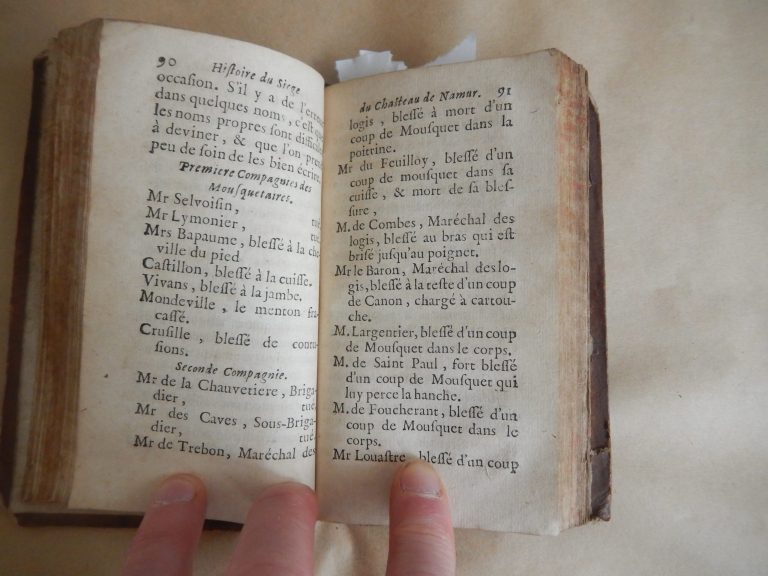 90 Histoire du Siege
occasion. S'il y a de l'erreur
dans quelques noms, c'est que
les noms propres sont difficiles
à deviner, & que l'on prend
peu de soin de les bien écrire.
Premiere Compagnies des
Mousquetaires.
Mr Selvoisin, tué
Mr Lymonier, tué.
Mrs Bapaume, blessé à la che
ville du pied
Castillon, blessé à la cuisse.
Vivans, blessé à la jambe.
Mondeville, le menton fra
cassé.
Crusille, blessé de contu
sions.
Seconde Compagnie.
Mr de la Chauvetiere, Briga
dier, tué.
Mr des Caves, Sous-Briga
dier, tué.
Mr de Trebon, Maréchal des
du Chasteau de Namur. 91
logis, blessé à mort d'un
coup de Mousquet dans la
poitrine.
Mr du Feuilloy, blessé d'un
coup de mousquet dans sa
cuisse, & mort de sa bles-
sure,
M. de Combes, Maréchal des
logis, blessé au bras qui est
brisé jusqu'au poignet.
Mr le Baron, Maréchal des lo-
gis, blessé à la teste d'un coup
de Canon, chargé à cartou-
che.
M. Largentier, blessé d'un coup
de Mousquet dans le corps.
M. de Saint Paul, fort blessé
d'un coup de Mousquet qui
luy perce la hanche.
M. de Foucherant, blessé d'un
coup de Mousquet dans le
corps.
Mr Louastre, blessé d'un coup